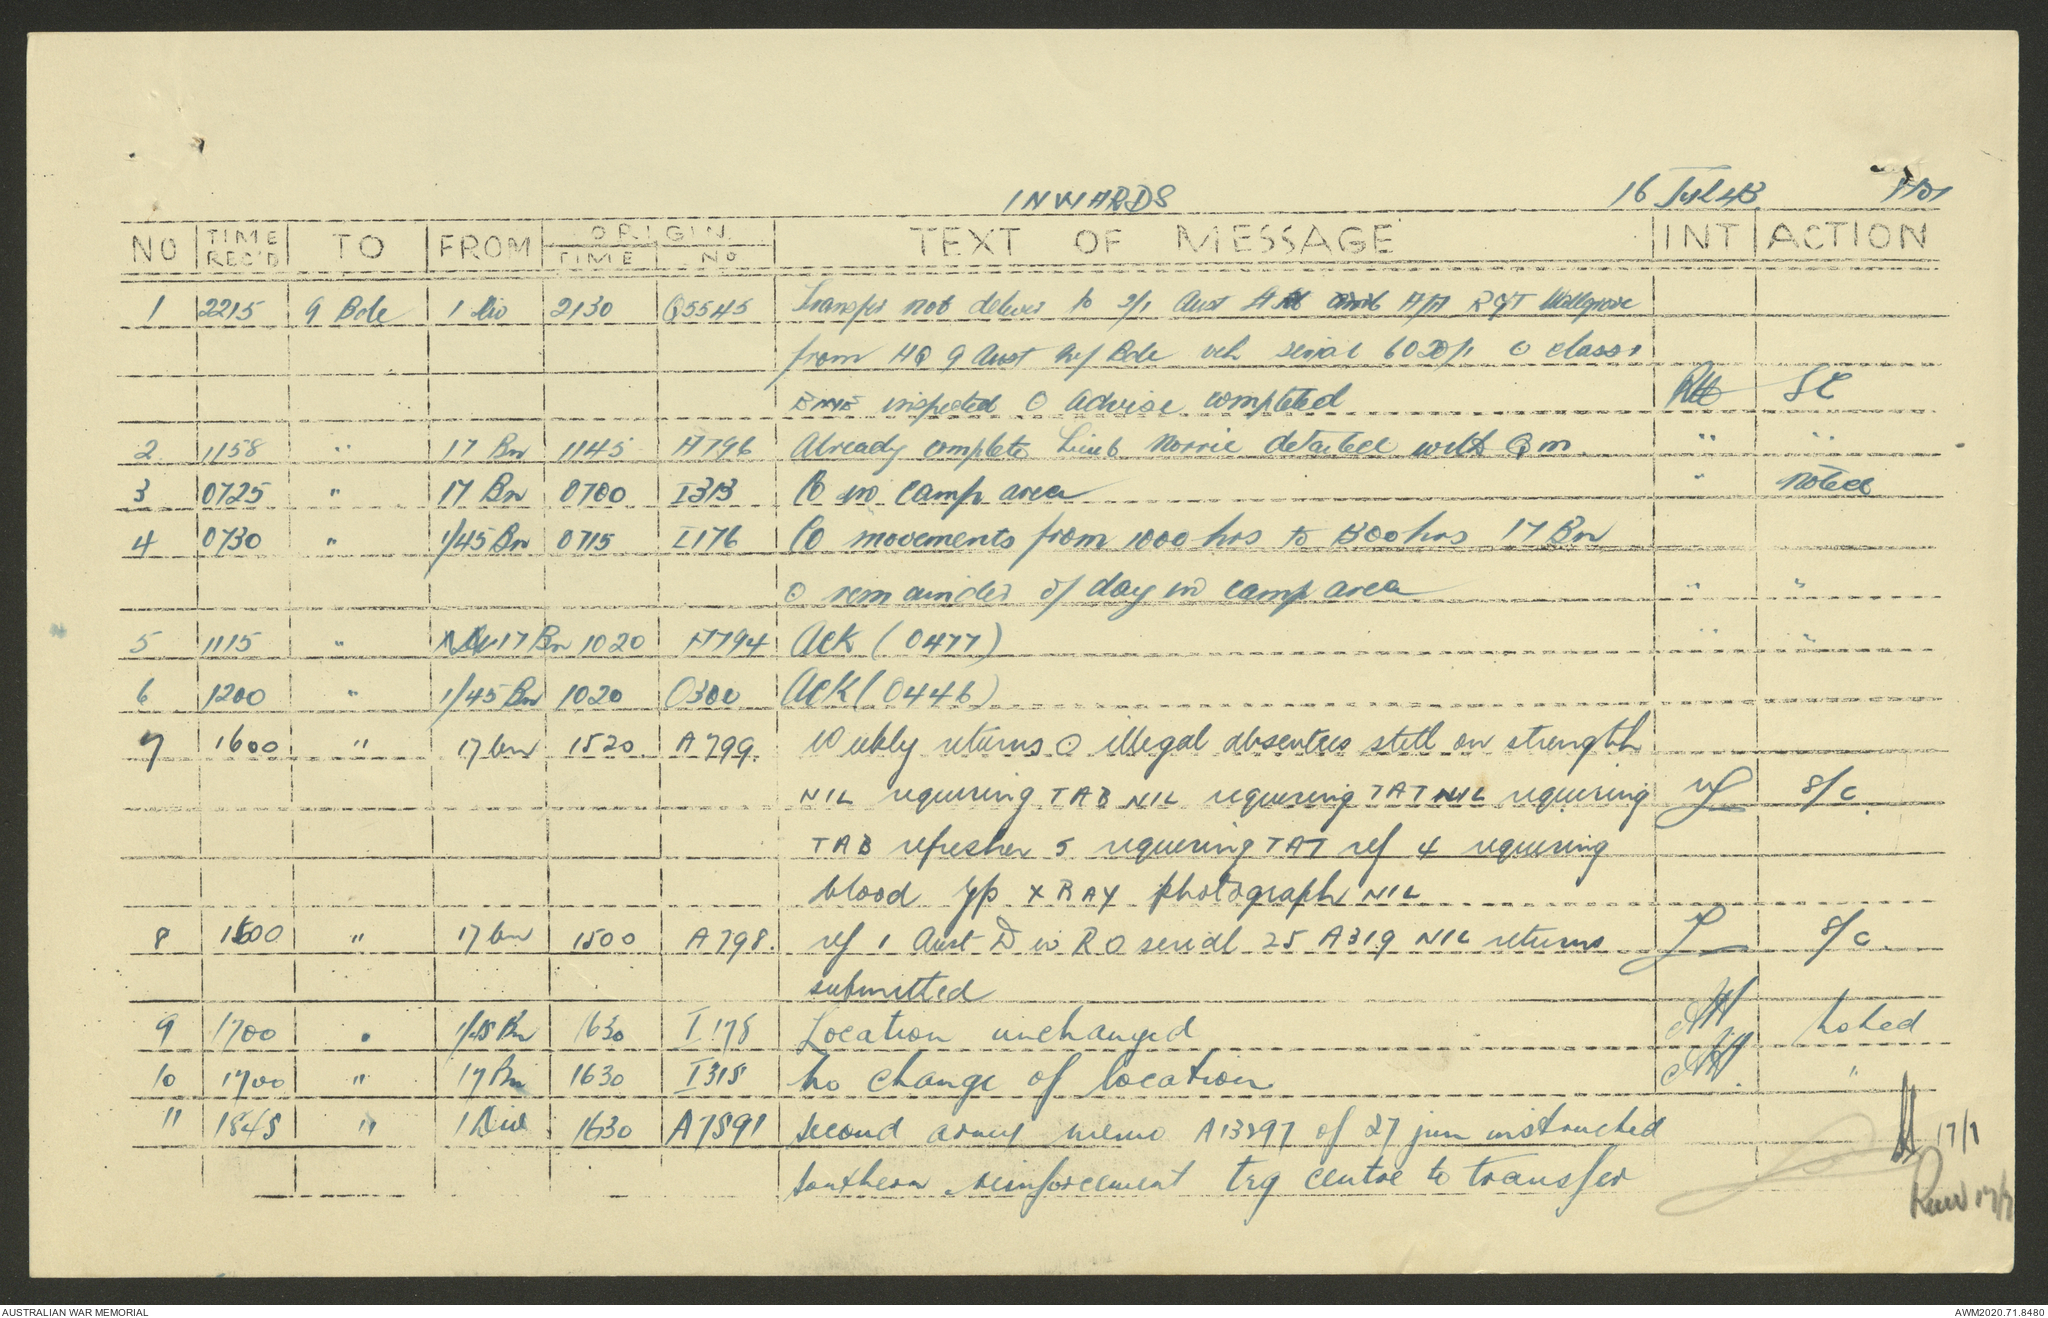 INWARDS 16 Jul 43
NO TIME REC'D TO FROM ORIGIN TIME NO TEXT OF MESSAGE INT ACTION
1 2215 9 Bde 1 Div 2130 Q5545 Transfer not deliver to 2/1 Aust A/A RGT Wallgrove
from HQ 9 Aust Inf Bde veh serial O class 1
EME inspected O advise completed SC
2 1158 " 17 Bn 1145 A796 Already complete Lieut Norrie detailed with QM " "
3 0725 " 17 Bn 0700 I313 CO in camp area " Noted
4 0730 " 1/45 Bn 0715 I176 CO movements from 1000 hrs to 1300 hrs 17 Bn
O remainder of day in camp area " "
5 1115 " 17 Bn 1020 A794 Ack (0477) " "
6 1200 " 1/45 Bn 1020 O300 ACK (0446)
7 1600 " 17 bn 1520 A799. Weekly returns O illegal absentees still on strength
NIL requiring TAB NIL requiring TAT NIL requiring S/C
TAB refresher 5 requiring TAT ref 4 requiring
blood gp X RAY photograph NIL
8 1600 " 17 bn 1500 A798. ref 1 Aust Div RO serial 25 A319 NIL returns S/C.
submitted
9 1700 " 1/45 Bn 1630 I 178 Location unchanged Noted
10 1700 " 17 Bn 1630 I318 No change of location "
11 1845 " 1 Div 1630 A7891 second army memo A13297 of 27 jun instructed 17/7
southern reinforcement trg centre to transfer 17/7
AUSTRALIAN WAR MEMORIAL AWM2020.71.8480